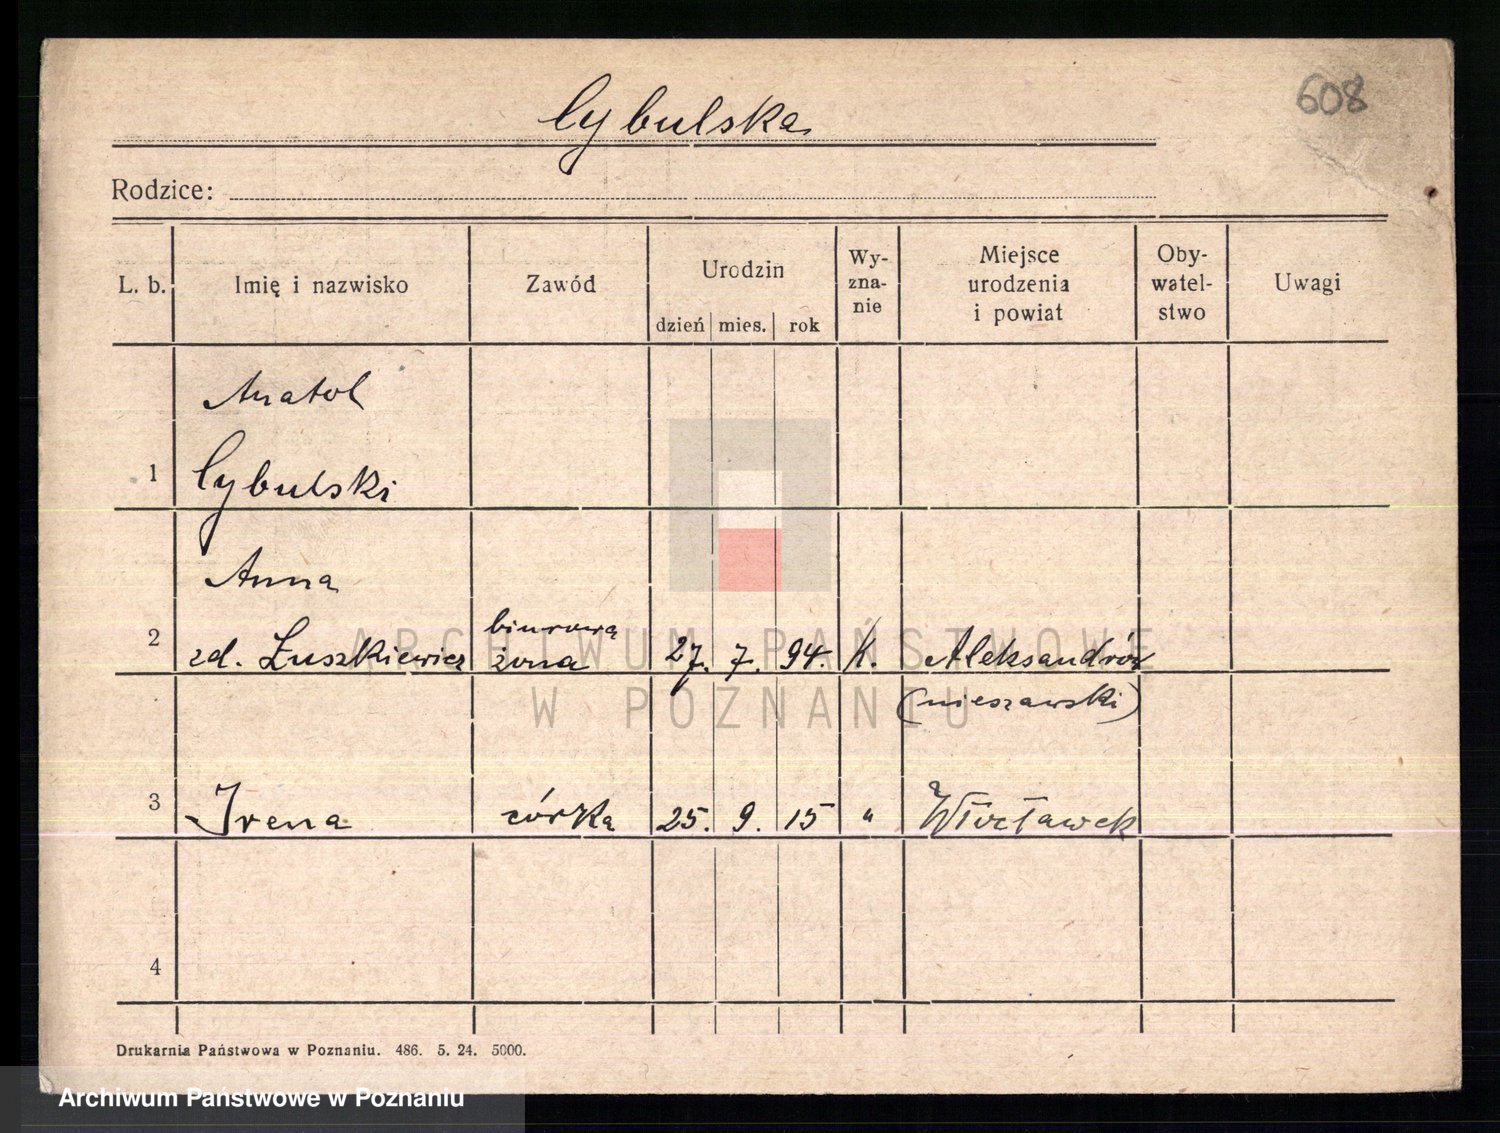 608
Cybulska
Rodzice:
L. b. Imię i nazwisko Zawód Urodzin dzień mies. rok Wy-zna-nie Miejsce urodzenia i powiat Oby-watel-stwo Uwagi
Anatol
1 Cybulski
Anna biurową
2 zd. Łuszkiewicz żona 27. 7. 94. K. Aleksandrów
(nieszawski)
3 Irena córka 25. 9. 15 " Włocławek
4
ARCHIWUM PAŃSTWOWE
W POZNANIU
Drukarnia Państwowa w Poznaniu. 486. 5. 24. 5000.
Archiwum Państwowe w Poznaniu